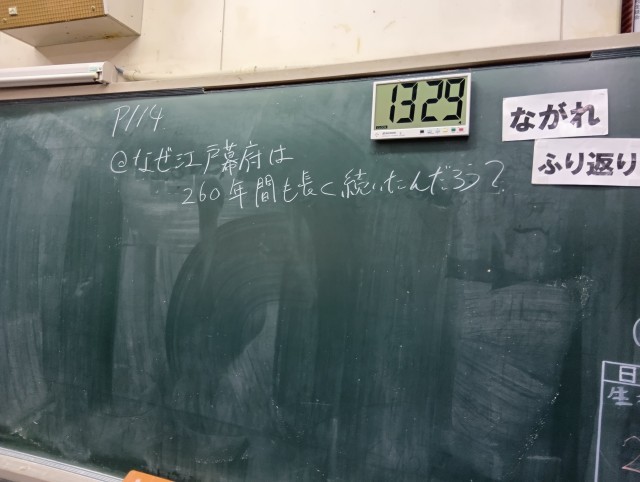 P114
@なぜ江戸幕府は
260年間も長く続いたんだろう?
1329
ながれ
ふり返り
日
生